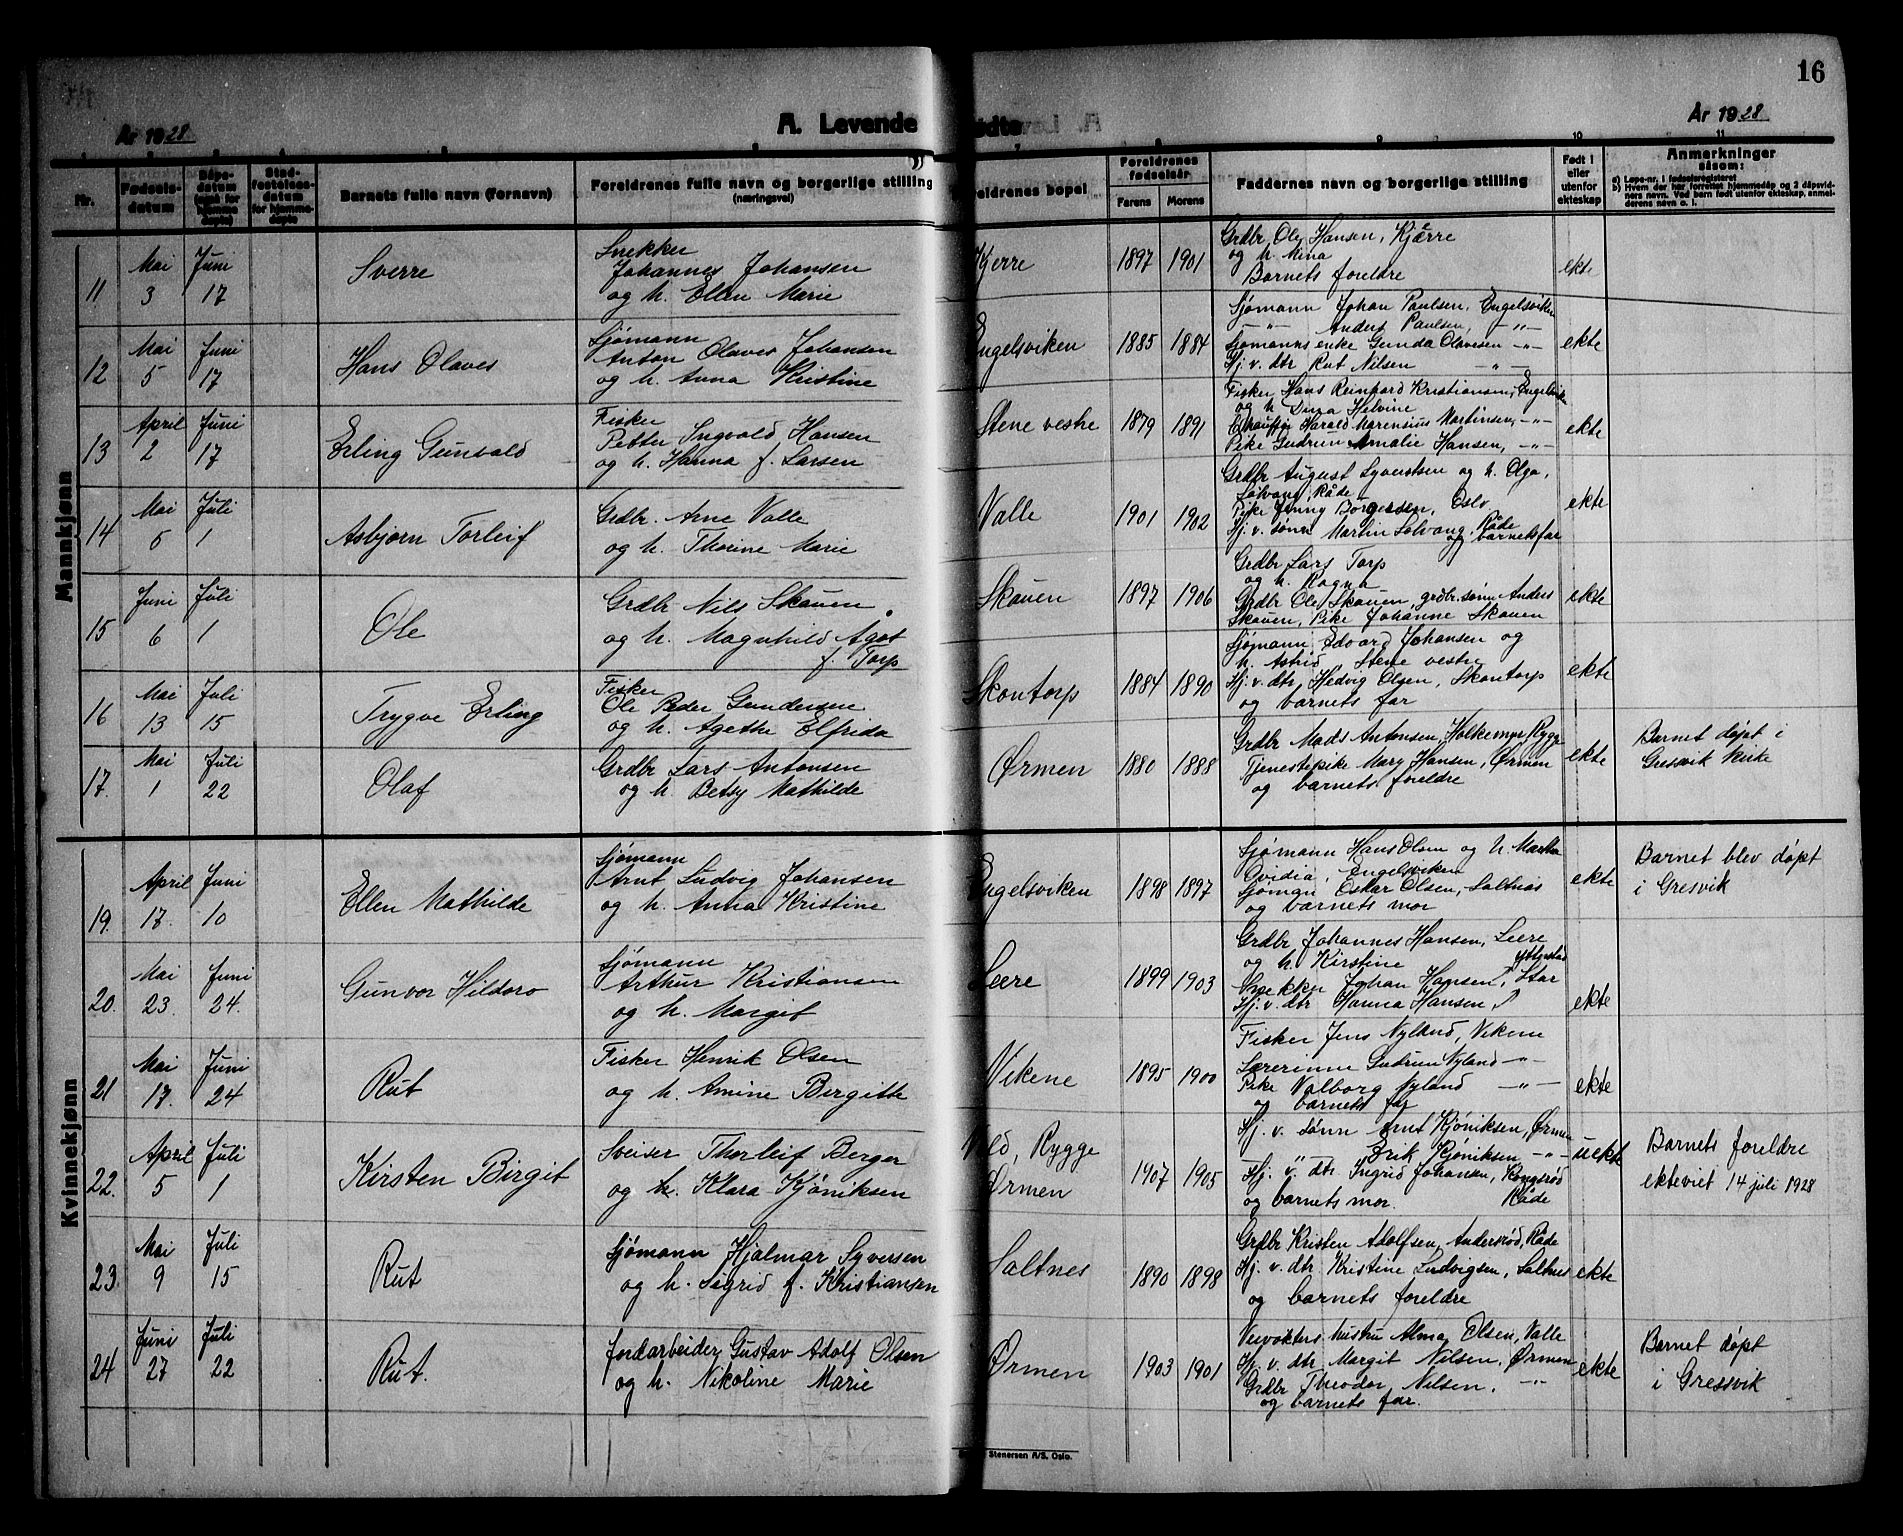 16
År 1928
A. Levende
ødte
År 1928
1 2 3 4 5 6 7 8 9 10 11
Nr.
Fødsels-
datum
Dåps-
datum
Stad-
festelses-
datum
for hjemme-
døpte
Barnets fulle navn (fornavn)
Foreldrenes fulle navn og borgerlige stilling
(næringsvei)
eldrenes bopel
Foreldrenes
fødselsår
Farens
Morens
Faddernes navn og borgerlige stilling
Født i
eller
utenfor
ekteskap
Anmerkninger
såsom:
a) Løpe-nr. i fødselsregisteret
b) Hvem der har forrettet hjemmedåp og 2 dåpsvid-
ners navn. Ved barn født utenfor ekteskap, anmel-
derens navn o. l.
Mannkjønn
11
Mai
3
Juni
17
Sverre
Snekker
Johannes Johansen
og h. Ellen Marie
Kjerre
1897
1901
Grdbr. Ole Hansen, Kjærre
og h. Mina
Barnets foreldre
ekte
12
Mai
5
Juni
17
Hans Olaves
Sjømann
Anton Olaves Johansen
og h. Anna Kristine
Engelsviken
1885
1884
Sjømann Johan Paulsen, Engelsviken
—"— Anders Paulsen, —"—
Sjømanns enke Gunda Olavesen —"—
Hj. v. dtr Rut Nilsen —"—
ekte
13
April
2
Juni
17
Erling Gunvald
Fisker
Petter Ingvald Hansen
og h. Hanna f. Larsen
Stene vestre
1879
1891
Fisker Hans Reinhard Kristiansen, Engelsviken
og h. Dina Helvine
Chauffør Harald Marensius Martinsen, —"—
Pike Gudrun Amalie Hansen, —"—
ekte
14
Mai
6
Juli
1
Asbjørn Torleif
Grdbr. Arne Valle
og h. Thorine Marie
Valle
1901
1902
Grdbr August Syvertsen og h. Olga,
Solvang, Råde
Pike Jenny Borgersen, Oslo
Hj. v. sønn Martin Solvang, Råde
og barnets far
ekte
15
Juni
6
Juli
1
Ole
Grdbr Nils Skauen
og h. Magnhild Ågot
f. Torp
Skauen
1897
1906
Grdbr Lars Torp
og h. Ragna
Grdbr Ole Skauen, grdbr. sønn Anders
Skauen, Pike Johanne Skauen
ekte
16
Mai
13
Juli
15
Trygve Erling
Fisker
Ole Peder Gundersen
og h. Agethe Elfrida
Skontorp
1884
1890
Sjømann Edvard Johansen og
h. Astrid Stene vestre
Hj. v. dtr. Hedvig Olsen, Skontorp
og barnets far
ekte
17.
Mai
1
Juli
22
Olaf
Grdbr Lars Antonsen
og h. Betsy Mathilde
Ørmen
1880
1888
Grdbr Mads Antonsen, Rygge
Tjenestepike Mary Hansen, Ørmen
og barnets foreldre
ekte
Barnet døpt i
Gresvik kirke
Kvinnekjønn
19.
April
17.
Juni
10
Ellen Mathilde
Sjømann
Arnt Ludvig Johansen
og h. Anna Kristine
Engelsviken
1898
1897
Sjømann Hans Olsen og h. Martha
Ovidia, Engelsviken
Sjømann Oskar Olsen, Saltnes
og barnets mor
ekte
Barnet blev døpt
i Gresvik
20.
Mai
23.
Juni
24.
Gunvor Hildoro
Sjømann
Arthur Kristiansen
og h. Margit
Leere
1899
1903
Grdbr Johannes Hansen, Leere
og h. Kirstine
Snekker Johan Hansen,
Hj. v. dtr Hanna Hansen,
ekte
21
Mai
17.
Juni
24
Rut
Fisker Henrik Olsen
og h. Amine Birgitte
Vikene
1895
1900
Fisker Jens Nyland, Vikene
Lærerinne Gudrun Nyland —"—
Pike Valborg Nyland —"—
og barnets far
ekte
22.
April
5
Juli
1
Kirsten Birgit
Sveiser Thorleif Berger
og h. Klara Kjøniksen
Vold, Rygge
Ørmen
1907
1905
Hj. v. sønn Arnt Kjøniksen, Ørmen
—"— Erik Kjøniksen —"—
Hj. v. dtr Ingrid Johansen, Kongsrød
og barnets mor. Råde
uekte
Barnets foreldre
ekteviet 14 juli 1928
23.
Mai
9
Juli
15
Rut
Sjømann Hjalmar Syversen
og h. Sigrid f. Kristiansen
Saltnes
1890
1898
Grdbr Kristen Adolfsen, Andersrød, Råde
Hj. v. dtr Kristine Ludvigsen, Saltnes
og barnets foreldre
ekte
24
Juni
27
Juli
22
Rut.
Jordarbeider Gustav Adolf Olsen
og h. Nikoline Marie
Ørmen
1903
1901
Veivokters hustru Alma Olsen, Valle
Hj. v. dtr Margit Nilsen, Ørmen
Grdbr Theodor Nilsen, —"—
og barnets far.
ekte
Barnet døpt
i Gressvik
Stenersen A/S. Oslo.